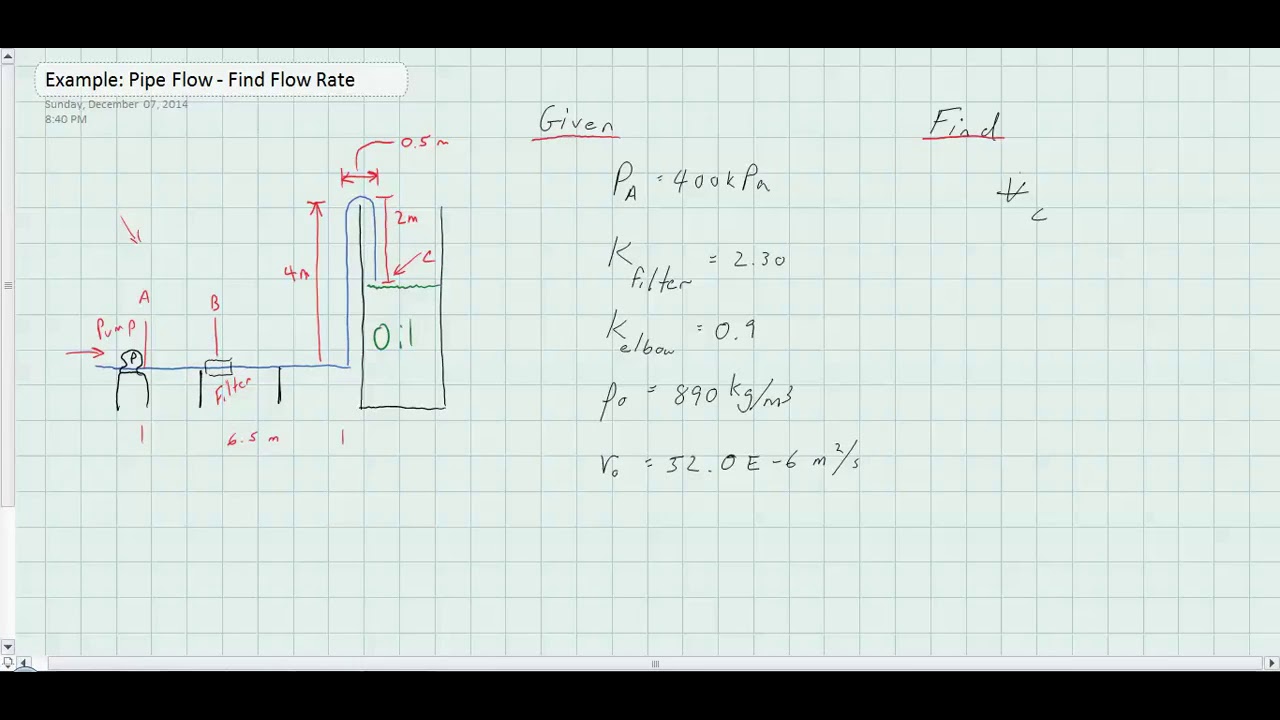 Example: Pipe Flow - Find Flow Rate
Sunday, December 07, 2014
8:40 PM
0.5 m
2m
C
4m
A
B
Pump
P
Filter
Oil
6.5 m
Given
P_A = 400kPa
K_filter = 2.30
K_elbow = 0.9
ρ_o = 890 kg/m3
ν_o = 52.0 E-6 m²/s
Find
V̶̇_c